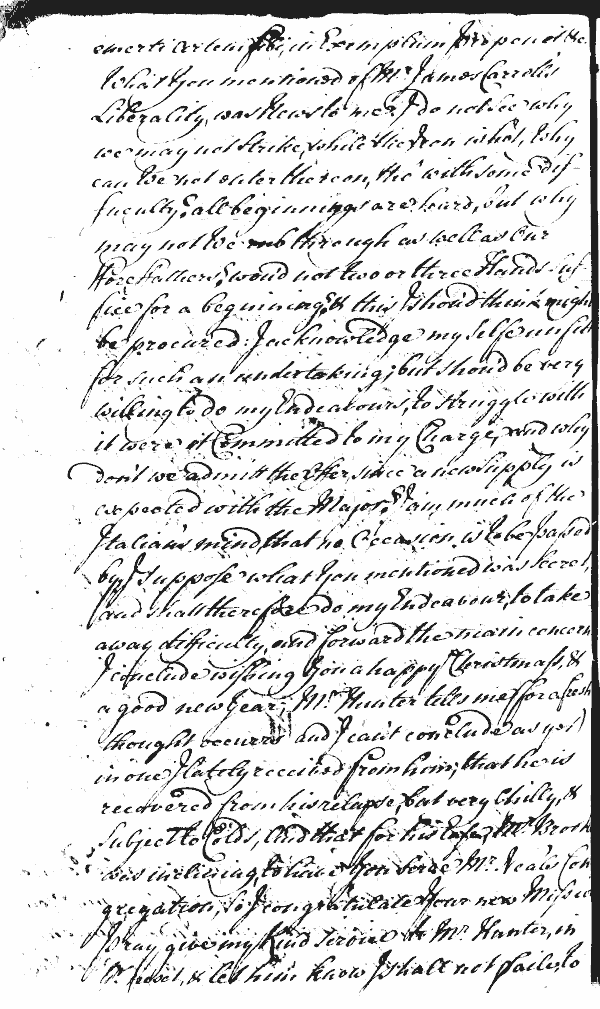 in Exemplum
What You mentioned of Mr. James Carroll's
Liberality, was News to me. I do not see why
we may not strike, while the Iron is hot, Why
can We not enter thereon, tho' with some dif-
ficulty? all beginnings are hard, but why
may not We rub through as well as Our
Fore Fathers? wou'd not two or three Hands suf-
fice for a beginning? & this I shou'd think might
be procured: I acknowledge my selfe unfitt
for such an undertaking; but shou'd be very
willing to do my Endeavours, to struggle with
it were it Committed to my Charge, and why
don't we admitt the Offer since a new supply is
expected with the Major? I am much of the
Italian's mind, that no Occasion is to be passed
by. I suppose what You mentioned was secret,
and shall therefore do my Endeavour, to take
away difficulty, and forward the main concern
I conclude wishing You a happy Christmass, &
a good new Year; Mr. Hunter tells me (for a fresh
thought occurrs and I can't conclude as yet)
in one I lately received from him; that he is
recovered from his relapse, but very Chilly, &
subject to Colds, and that for his Ease, Mr. Brook
was inclining to have You serve Mr. Neale's Con
gregation, so I congratulate Your new Mission
Pray give my Kind service to Mr. Hunter, in
& let him know I shall not faile, to